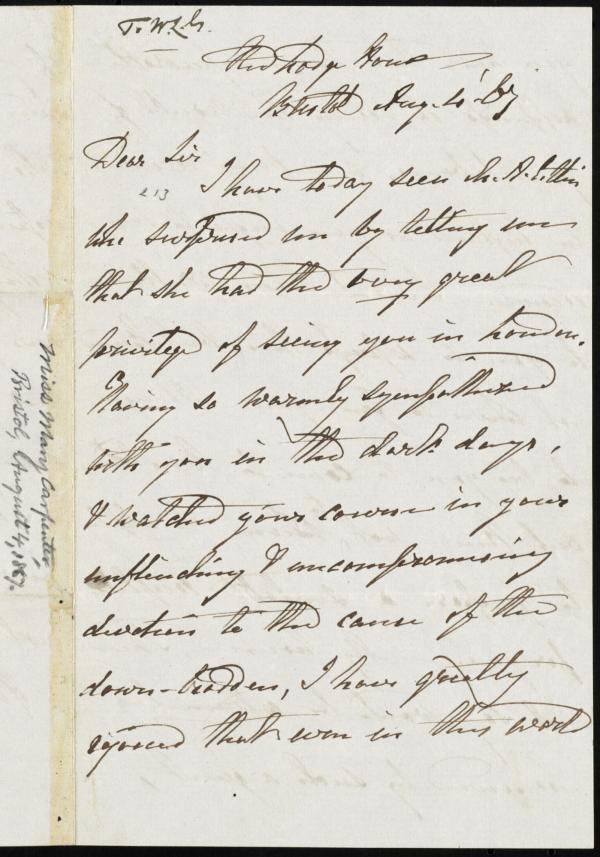 To W.L.G.
The Lodge House
Bristol Aug. 4 '67
Dear Sir
213
I have today seen Mr. A.
who surprised me by telling me
that she had the very great
privilege of seeing you in London.
Having so warmly sympathized
with you in the dark days,
& watched your course in your
unflinching & uncompromising
devotion to the cause of the
down-trodden, I have greatly
rejoiced that even in this world
Miss Mary Carpenter,
Bristol, August 4, 1867.